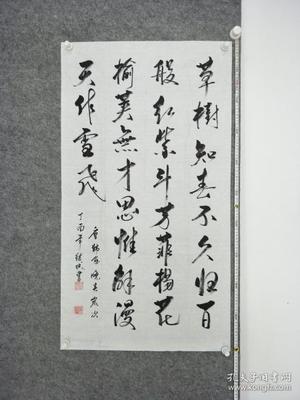 草樹知春不久归百
般红紫斗芳菲楊花
榆荚無才思惟解漫
天作雪飛
唐韩愈晚春
孔夫子旧书网